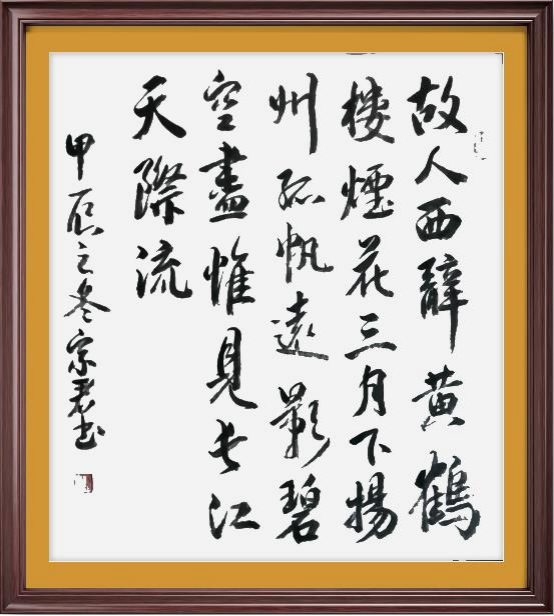 故人西辭黄鶴
樓煙花三月下揚
州孤帆遠影碧
空盡惟見长江
天際流
甲辰之冬宗君书